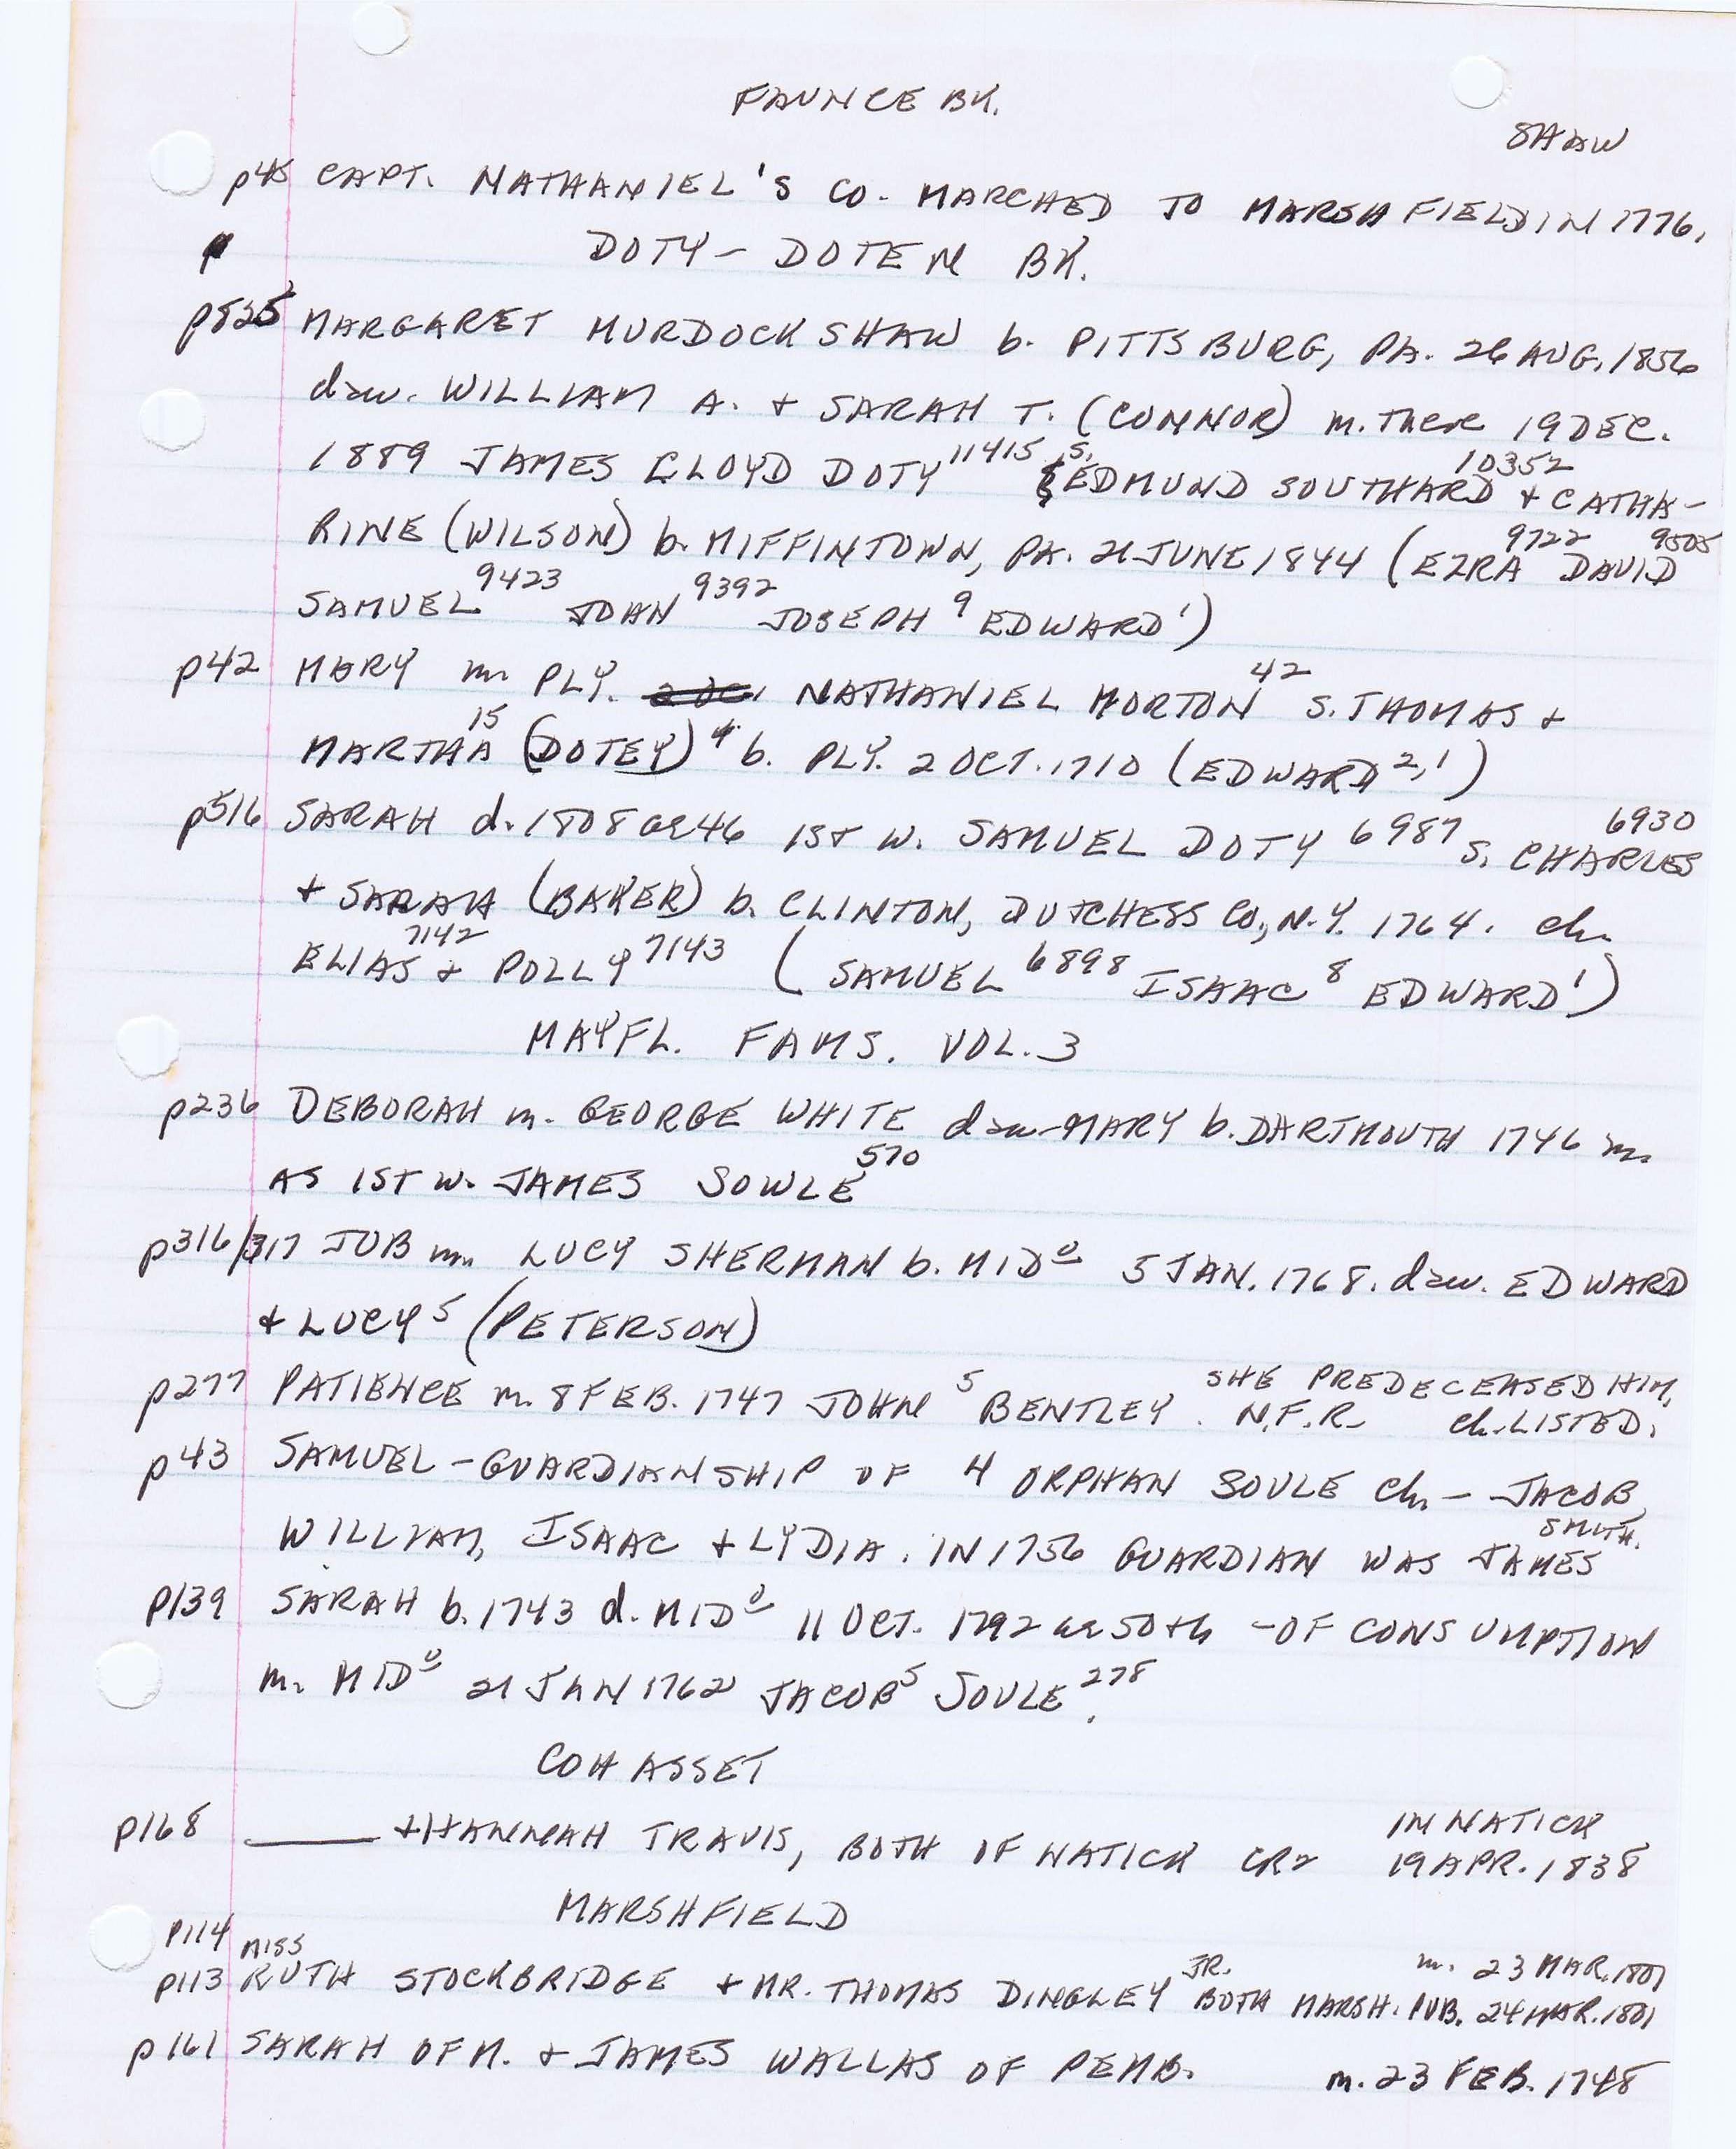 FAUNCE BK.
SHAW
p45 CAPT. NATHANIEL'S CO. MARCHED TO MARSHFIELD IN 1776.
DOTY - DOTEN BK.
p525 MARGARET MURDOCK SHAW b. PITTSBURG, PA. 26 AUG. 1856
dau. WILLIAM A. + SARAH T. (CONNOR) m. There 19 DEC.
1889 JAMES LLOYD DOTY 11415 S. EDMUND SOUTHARD 10352 + CATHA-
RINE (WILSON) b. MIFFINTOWN, PA. 21 JUNE 1844 (EZRA 9722 DAVID 9505
SAMUEL 9423 JOHN 9392 JOSEPH 9 EDWARD 1)
p42 MARY m. PLY. NATHANIEL MORTON 42 S. THOMAS +
MARTHA 15 (DOTEY) 4 b. PLY. 2 OCT. 1710 (EDWARD 2,1)
p516 SARAH d. 1808 ae 46 1ST W. SAMUEL DOTY 6987 S. CHARLES 6930
+ SARAH (BAKER) b. CLINTON, DUTCHESS CO., N.Y. 1764. ch.
ELIAS 7142 + POLLY 7143 (SAMUEL 6898 ISAAC 8 EDWARD 1)
MAYFL. FAMS. VOL. 3
p236 DEBORAH m. GEORGE WHITE dau-MARY b. DARTMOUTH 1746 m.
AS 1ST W. JAMES SOWLE 570
p316/317 JOB m. LUCY SHERMAN b. MIDO 5 JAN. 1768. dau. EDWARD
+ LUCY 5 (PETERSON)
p277 PATIENCE m. 8 FEB. 1747 JOHN 5 BENTLEY. SHE PREDECEASED HIM. N.F.R. ch. LISTED.
p43 SAMUEL - GUARDIANSHIP OF 4 ORPHAN SOULE ch. - JACOB,
WILLIAM, ISAAC + LYDIA. IN 1756 GUARDIAN WAS JAMES SMITH.
p139 SARAH b. 1743 d. MIDO 11 OCT. 1792 ae 50th - OF CONSUMPTION
m. MIDO 21 JAN 1762 JACOB 5 SOULE 278.
COHASSET
p168 ______ + HANNAH TRAVIS, BOTH OF NATICK CR2 IN NATICK 19 APR. 1838
MARSHFIELD
p114 MISS
p113 RUTH STOCKBRIDGE + MR. THOMAS DINGLEY JR. BOTH MARSH. PUB. 24 MAR. 1801 m. 23 MAR. 1801
p161 SARAH OF M. + JAMES WALLAS OF PEMB. m. 23 FEB. 1748